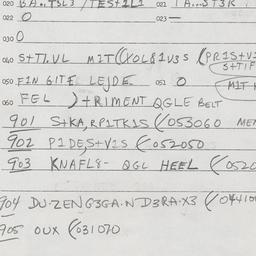 020 BA..TSL3 /TEST2L1 021 1A...ST3R
020 0 023 —
030 0
040 S+TI.VL MIT((XOL81V3S (PRIS+V1
S+TIF
050 FIN GITE LEJDE 051 0 MIT K
060 FEL )+RIMENT QGLE BELT
901 S+KA,RPITKIS (/053060 MEN
902 PIDES+VIS (/052050
903 KNAFL8- QGL HEEL (/0520
904 DU-ZENG3GA.NTD3RA.X3 (/04410
905 OUX (/031070